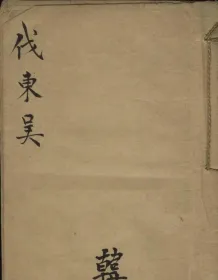 伐東吴